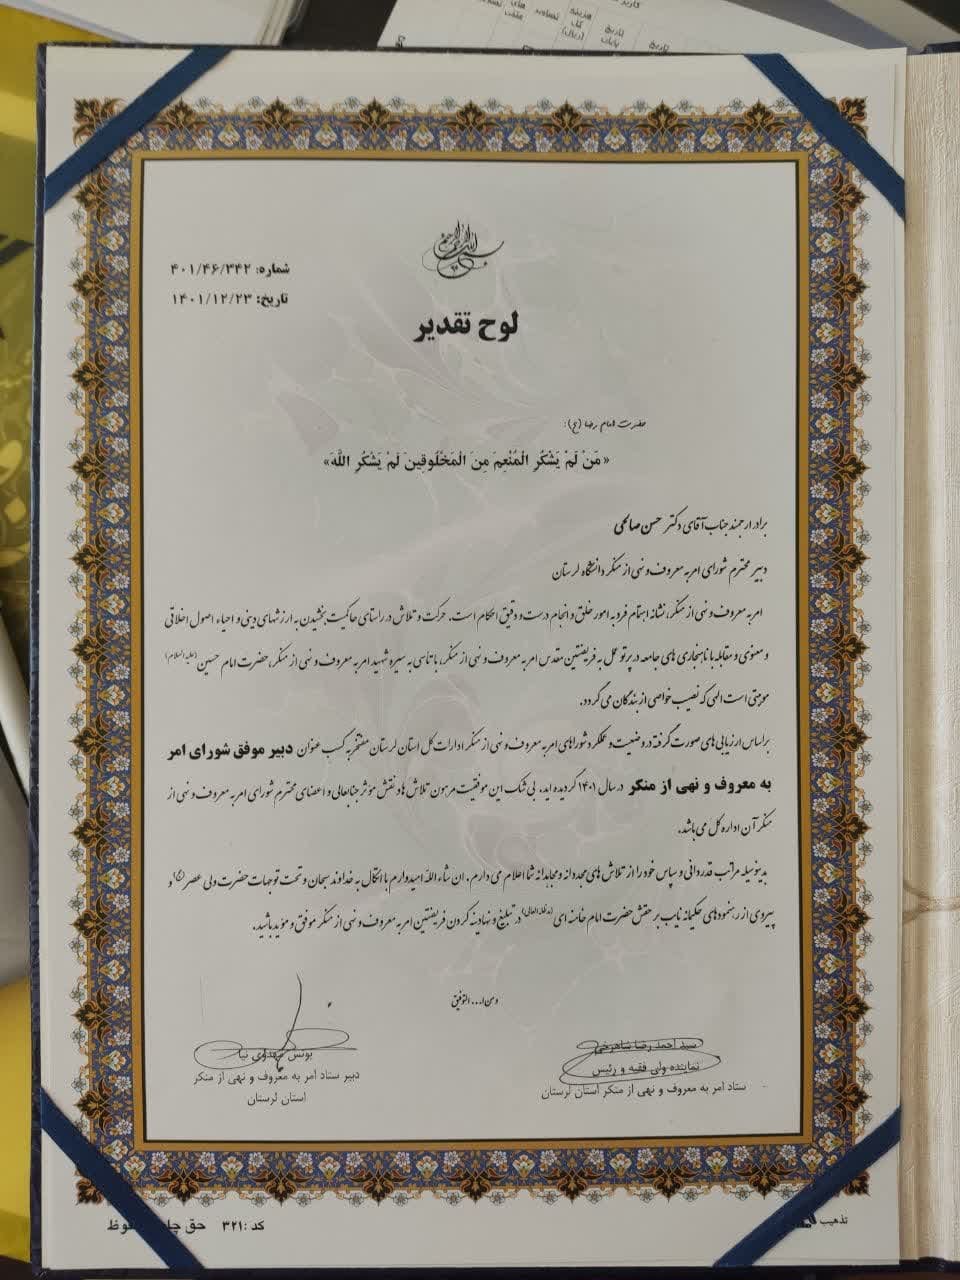 شماره: ۴۰۱/۴۶/۳۴۲
تاریخ: ۱۴۰۱/۱۲/۲۳
لوح تقدیر
حضرت امام رضا (ع):
«مَنْ لَمْ یَشْکُرِ الْمُنْعِمَ مِنَ الْمَخْلُوقینَ لَمْ یَشْکُرِ اللَّهَ»
برادر ارجمند جناب آقای دکتر حسن صالحی
دبیر محترم شورای امر به معروف و نهی از منکر دانشگاه لرستان
امر به معروف و نهی از منکر، نشانه اهتمام فرد به امور خلق و انجام درست و دقیق احکام است. حرکت و تلاش در راستای حاکمیت بخشیدن به ارزشهای دینی و احیاء اصول اخلاقی
و معنوی و مقابله با ناهنجاری های جامعه در پرتو عمل به فریضتین مقدس امر به معروف و نهی از منکر، با تأسی به سیره شهید امر به معروف و نهی از منکر، حضرت امام حسین (علیه السلام)
موهبتی است الهی که نصیب خواصی از بندگان می گردد.
براساس ارزیابی های صورت گرفته در وضعیت و عملکرد شوراهای امر به معروف و نهی از منکر ادارات کل استان لرستان مفتخر به کسب عنوان دبیر موفق شورای امر
به معروف و نهی از منکر در سال ۱۴۰۱ گردیده اید. بی شک این موفقیت مرهون تلاش ها و نقش موثر جنابعالی و اعضای محترم شورای امر به معروف و نهی از
منکر آن اداره کل می باشد.
بدینوسیله مراتب قدردانی و سپاس خود را از تلاش های مجدانه و مجاهدانه شما اعلام می دارم. ان شاء الله امیدوارم با اتکال به خداوند سبحان و تحت توجهات حضرت ولی عصر (عج) و
پیروی از رهنمودهای حکیمانه نایب بر حقش حضرت امام خامنه ای (مدظله العالی) در تبلیغ و نهادینه کردن فریضتین امر به معروف و نهی از منکر موفق و مؤید باشید.
و من ا... التوفیق
سید احمد رضا شاهرخی
نماینده ولی فقیه و رئیس
ستاد امر به معروف و نهی از منکر استان لرستان
یونس مهدوی نیا
دبیر ستاد امر به معروف و نهی از منکر
استان لرستان
تذهیب
کد :۳۲۱ حق